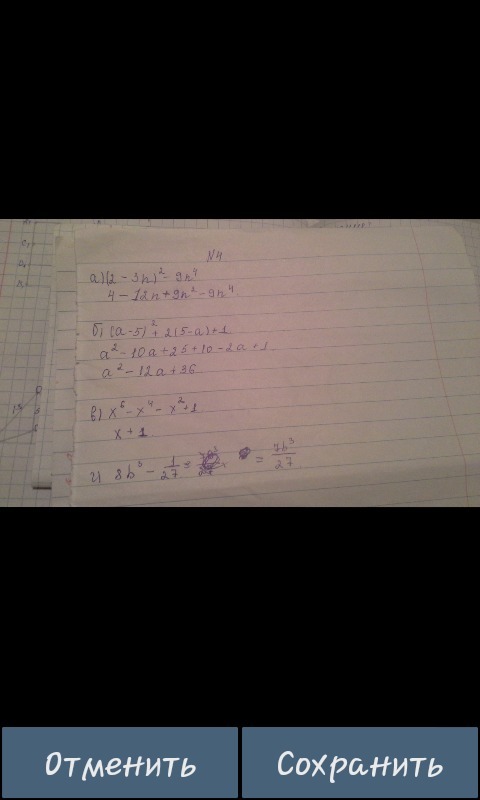 №4
а) (2 - 3n)² - 9n⁴
4 - 12n + 9n² - 9n⁴.
б) (a - 5)² + 2(5 - a) + 1
a² - 10a + 25 + 10 - 2a + 1
a² - 12a + 36
в) x⁶ - x⁴ - x² + 1
x + 1.
г) 8b³ - 1/27 = = 7b³/27.
Отменить
Сохранить